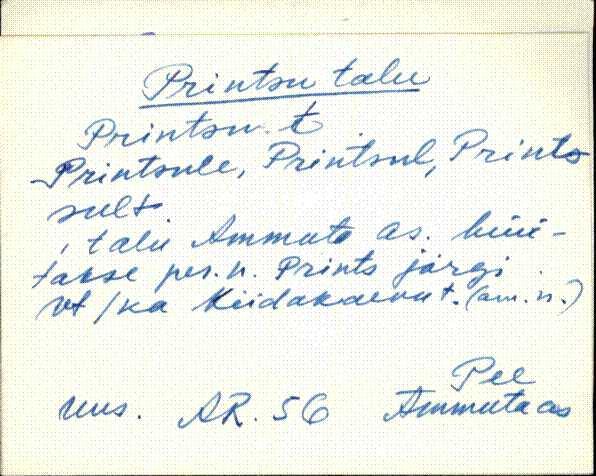 Printsu talu
Printsu. t
Printsule, Printsul, Prints
sult
, talu Ammuta as. hüü-
takse per. n. Prints järgi
Vt /ka Kiidakaevu t. (am. n.)
Pee
uus. AR. 56 Ammuta as